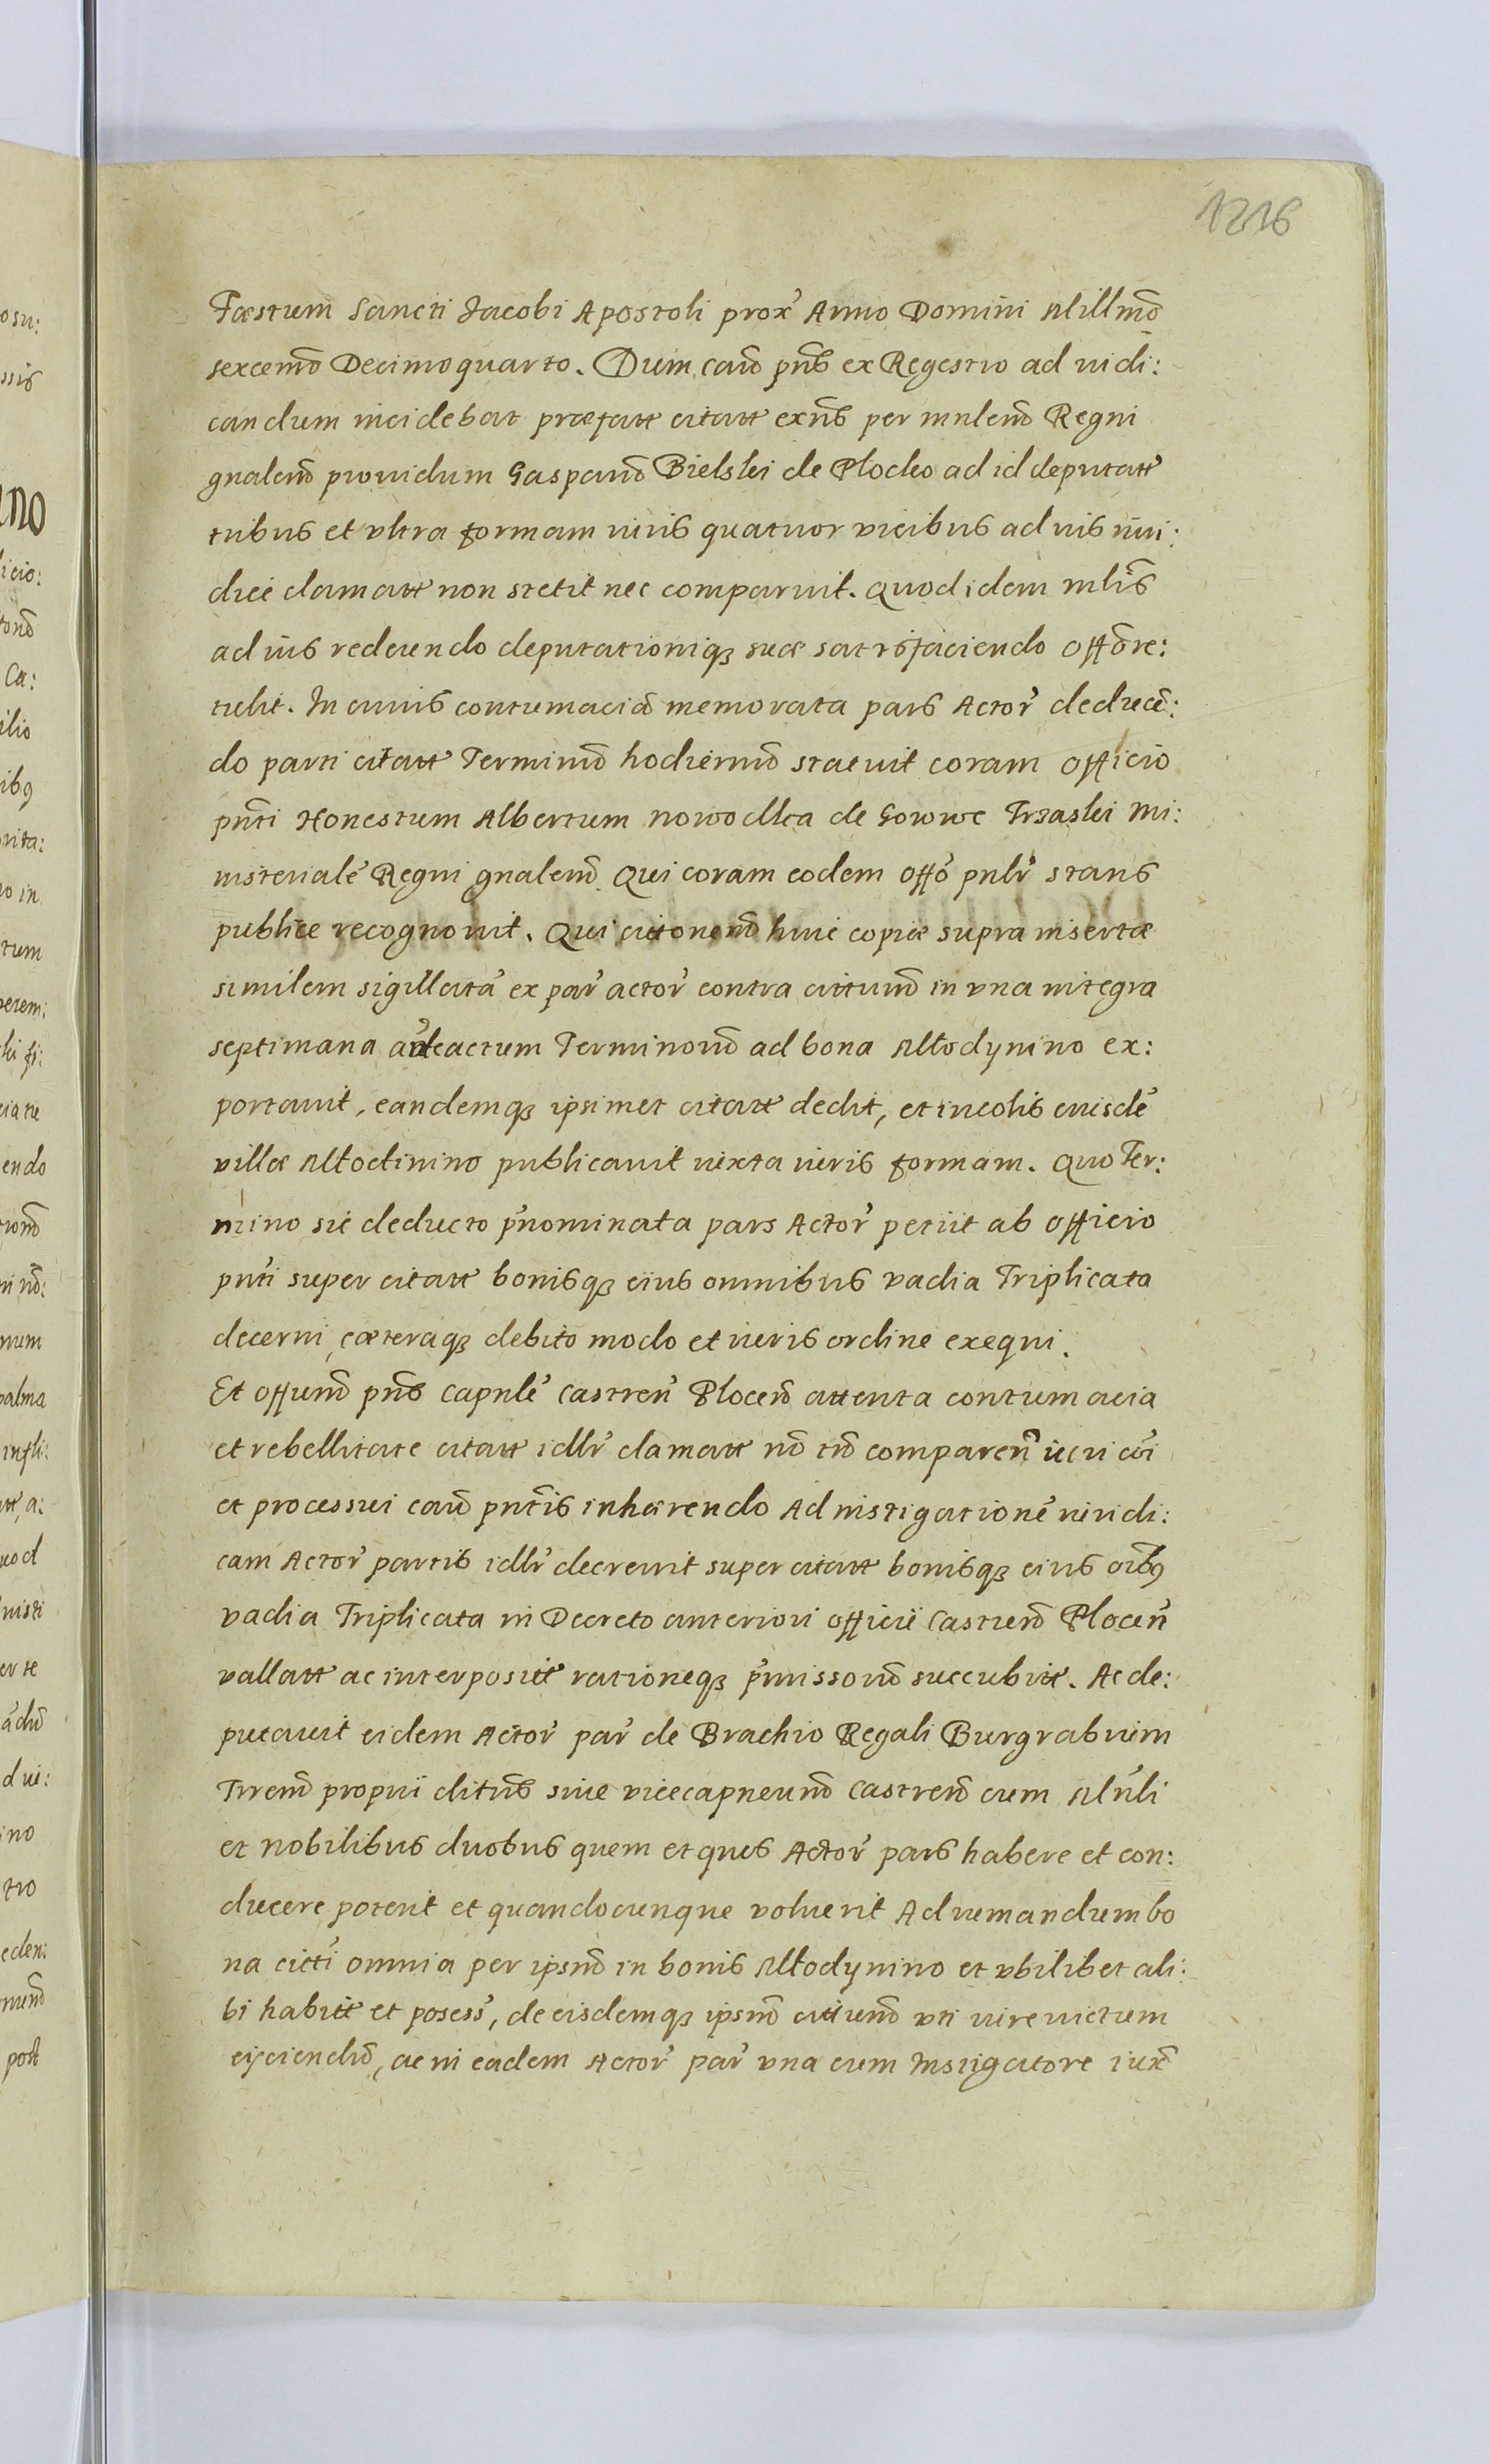 1216
Fæstum Sancti Jacobi Apostoli prox̃ Anno Domini Millmõ
sexcemõ Decimoquarto. Dum cauõ pñs ex Regestro ad iudi:
candum incidebat præfatt citatt exñs per mnlem̃ Regni
gnalem̃ prouidum Gasparũ Bielski de Plocko ad id deputatt
tribus et vltra formam iuris quatuor vicibus ad ius iuri:
dicé clamatt non stetit nec comparuit. Quod idem mlis̃
ad ius redeundo deputationiq3 suæ satisfaciendo offõ re:
tulit. In cuius contumaciã memorata pars Actor̃ deducẽ:
do parti citatt Terminũ hodiernũ statuit coram officio
pñti Honestum Albertum Nowodka de Gorwe Trzaski Mi:
nisterialẽ Regni gnalem̃. Qui coram eodem offõ pnlr̃ stans
publice recognouit. Qui citonem̃ huic copiæ supra insertæ
similem sigillatã ex par̃ actor̃ contra cittum̃ in vna integra
septimana anteactum Terminorũ ad bona Młodynino ex:
portauit, eandemq3 ipsimet citatt dedit, et incolis eiusdẽ
villæ Młodinino publicauit iuxta iuris formam. Quo Ter:
mino sic deducto p̃nominata pars Actor̃ petiit ab officio
pñti super citatt bonisq3 eius omnibus vadia Triplicata
decerni, cæteraq3 debito modo et iuris ordine exequi.
Et offium̃ pñs Capnlẽ Castren̄ Plocen̄ attenta contumacia
et rebellitate citatt idlr̃ clamatt nõ tñ comparen̄ iuri cõi
et processui cauõ pñtis inhærendo Ad instigationẽ iuridi:
cam Actor̃ partis idlr̃ decreuit super citatt bonisq3 eius oibus
vadia Triplicata in Decreto anteriori officii Castren̄ Plocen̄
vallatt ac interposit rationeq3 p̃missorũ succubitt. Ac de:
putauit eidem Actor̃ par̃ de Brachio Regali Burgrabium
Trrem̃ proprii ditũs siue vicecapneum̃ Castren̄ cum Mñli
et nobilibus duobus quem et quos Actor̃ pars habere et con:
ducere poterit et quandocunque voluerit Ad iumandum bo
na citti omnia per ipsũ in bonis Młodynino et vbilibet ali:
bi habitt et posess̃, de eisdemq3 ipsũ cittum̃ vti iure victum
eijciendũ, ac in eadem Actor̃ par̃ vna cum Instigatore iux̃